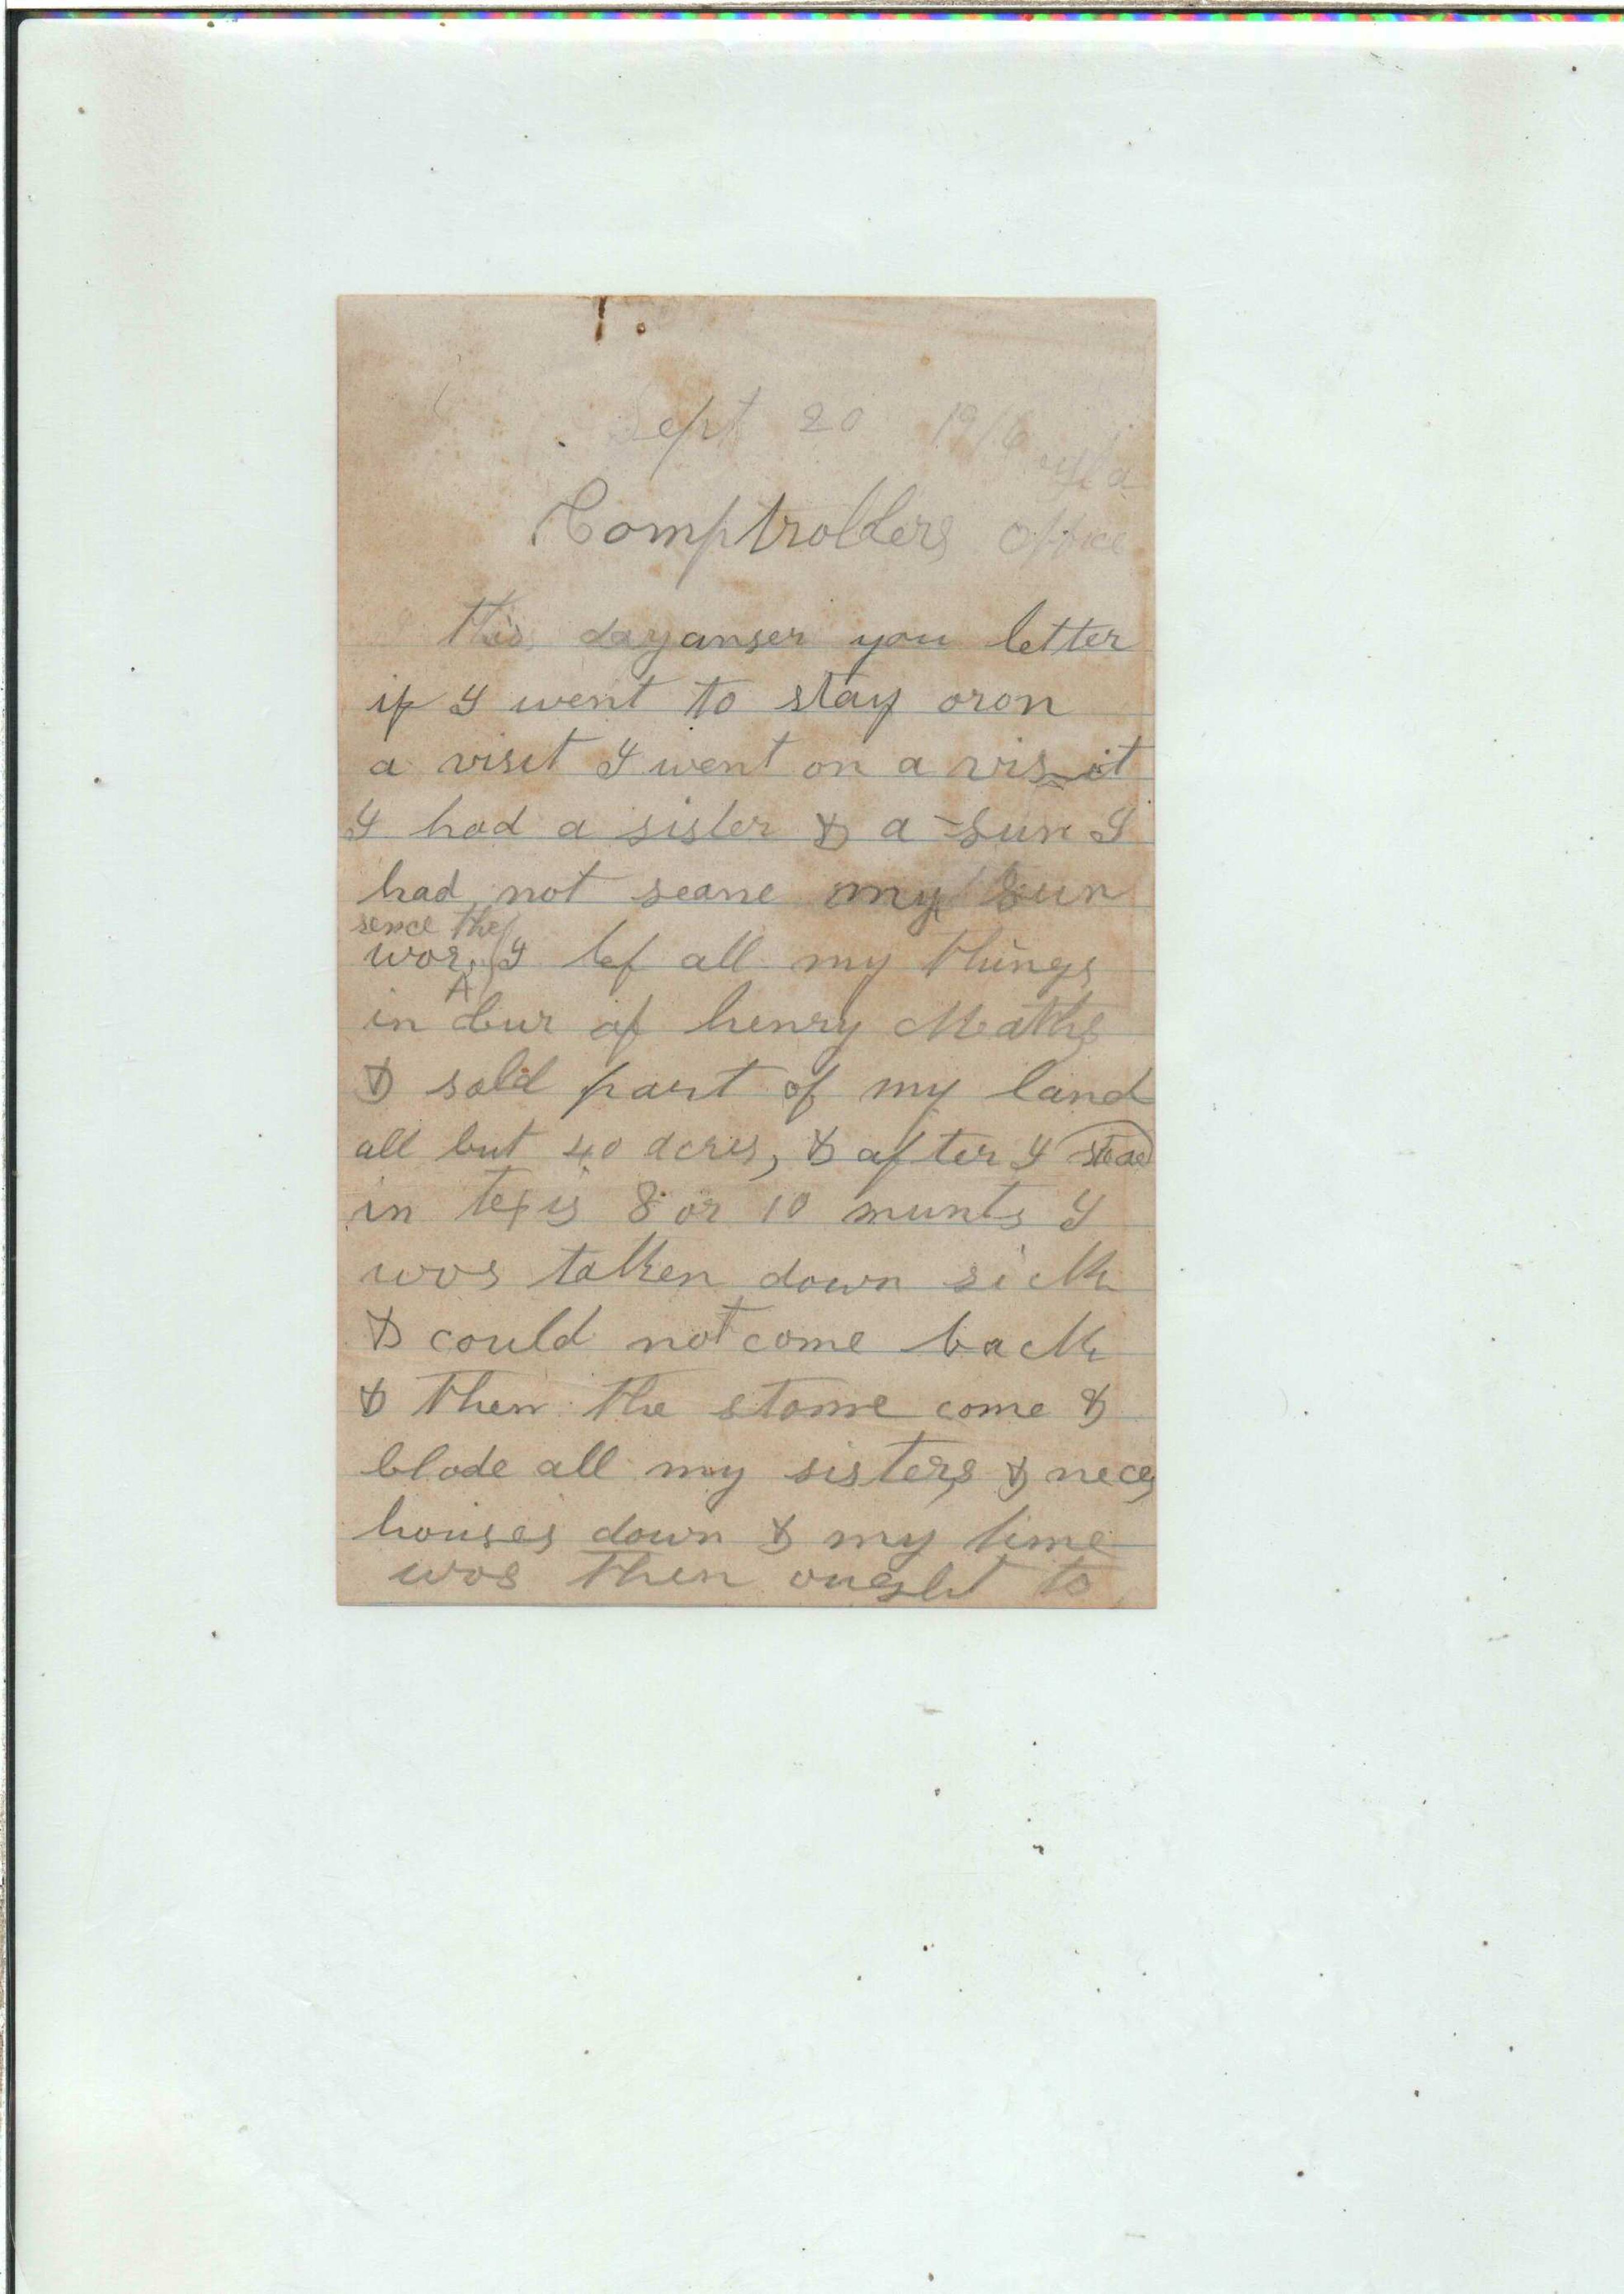 Sept 20 1916
Fla
Comptrollers Office
this day anser you letter
if I went to stay oron
a visit I went on a visit
I had a sister & a sun I
had not seane my sun
sence the
wor, I lef all my things
in cur of henry Maths
& sold part of my land
all but 40 acres, & after I
in texis 8 or 10 munts I
wos taken down sick
& could not come back
& then the storme come &
blode all my sisters & neces
houses down & my time
wos then ought to